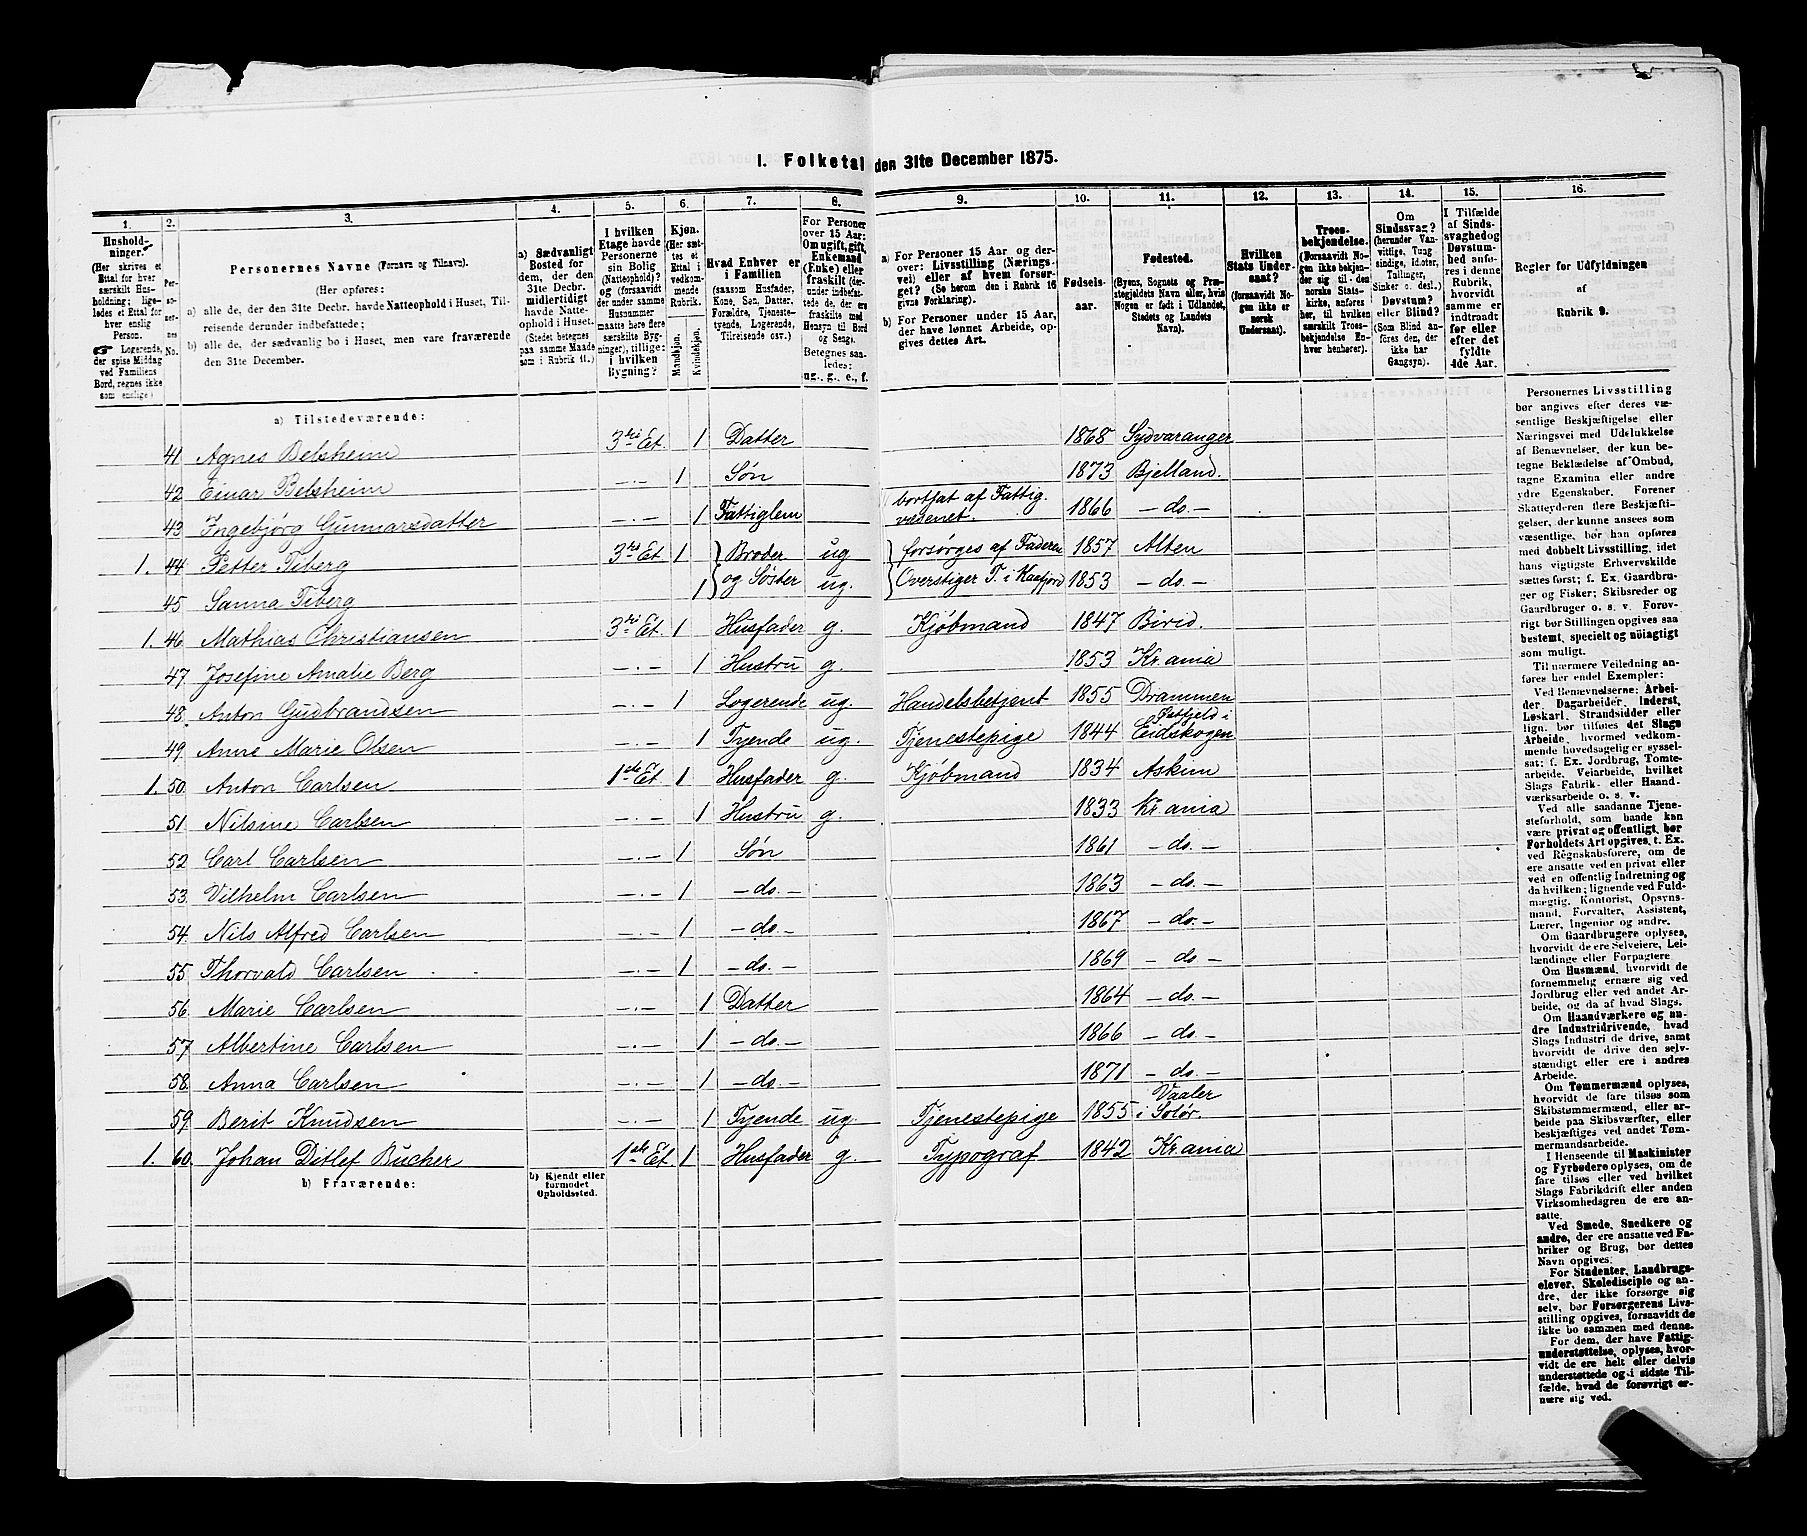 I. Folketal den 31te December 1875.
1. 2. 3. 4. 5. 6. 7. 8. 9. 10. 11. 12. 13. 14. 15. 16.
Husholdninger. (Her skrives et Ettal for hver særskilt Husholdning; ligeledes et Ettal for hver enslig Person. Logerende, der spise Middag ved Familiens Bord, regnes ikke som enslige.)
Personernes No.
Personernes Navne (Fornavn og Tilnavn).
(Her opføres:
a) alle de, der den 31te Decbr. havde Natteophold i Huset, Tilreisende derunder indbefattede;
b) alle de, der sædvanlig bo i Huset, men vare fraværende den 31te December.
a) Sædvanligt Bosted for dem, der den 31te Decbr. midlertidigt havde Natteophold i Huset. (Stedet betegnes paa samme Maade som i Rubrik 11.)
I hvilken Etage havde Personerne sin Bolig (Natteophold)? og (forsaavidt der under samme Husnummer maatte høre flere særskilte Bygninger), tillige: i hvilken Bygning?
Kjøn. (Her sættes et Ettal i vedkommende Rubrik.
Mandkjøn. Kvindekjøn.
Hvad Enhver er i Familien (saasom Husfader, Kone, Søn, Datter, Forældre, Tjenestetyende, Logerende, Tilreisende osv.)
For Personer over 15 Aar: Om ugift, gift, Enkemand (Enke) eller fraskilt (derunder indbefattede de, der ere fraskilte med Hensyn til Bord og Seng). Betegnes saaledes: ug., g., e., f.
a) For Personer 15 Aar og derover: Livsstilling (Næringsvei) eller af hvem forsørget? (Se herom den i Rubrik 16 givne Forklaring).
b) For Personer under 15 Aar, der have lønnet Arbeide, opgives dettes Art.
Fødselsaar.
Fødested. (Byens, Sognets og Præstegjeldets Navn eller, hvis Nogen er født i Udlandet, Stedets og Landets Navn).
Hvilken Stats Undersaat? (forsaavidt Nogen ikke er norsk Undersaat).
Troesbekjendelse. (Forsaavidt Nogen ikke bekjender sig til den norske Statskirke, anføres her, til hvilken særskilt Troesbekjendelse Enhver henhører).
Om Sindssvag? (herunder Vanvittige, Tungsindige, Idioter, Tullinger, Sinker o. desl.) Døvstum? eller Blind? (Som Blind anføres den, der ikke har Gangsyn).
I Tilfælde af Sindssvaghed og Døvstumhed anføres i denne Rubrik, hvorvidt samme er indtraadt før eller efter det fyldte 4de Aar.
Regler for Udfyldningen af Rubrik 9.
a) Tilstedeværende:
41 Agnes Belsheim 3die Et. 1 Datter 1868 Sydvaranger
42 Einar Belsheim —.— 1 Søn 1873 Bjelland.
43 Ingebjørg Gunnarsdatter —.— 1 Fattiglem bortsat af Fattigvæsenet. 1866 —do.—
1. 44 Petter Tiberg 3die Et. 1 Broder ug forsørges af Faderen 1857 Alten
45 Sanna Tiberg 1 og Søster ug. Overstiger T. i Kaafjord 1853 —do.—
1. 46 Mathias Christiansen 3die Et. 1 Husfader g. Kjøbmand 1847 Birid.
47. Josefine Amalie Berg —.— 1 Hustru g. 1853 Kr.ania
48. Anton Gudbrandsen —.— 1 Logerende ug. Handelsbetjent 1855 Drammen
49. Anne Marie Olsen —.— 1 Tyende ug. Tjenestepige 1844 Eidskogen
1. 50. Anton Carlsen 1ste Et. 1 Husfader g. Kjøbmand 1834 Askim
51. Nilsine Carlsen —.— 1 Hustru g. 1833 Kr.ania
52. Carl Carlsen —.— 1 Søn 1861 —do.—
53. Vilhelm Carlsen —.— 1 —do.— 1863 —do.—
54. Nils Alfred Carlsen —.— 1 —do.— 1867 —do.—
55. Thorvald Carlsen —.— 1 —do.— 1869 —do—
56. Marie Carlsen —.— 1 Datter 1864 —do.—
57. Albertine Carlsen —.— 1 —do.— 1866 —do.—
58. Anna Carlsen —.— 1 —do.— 1871 —do.—
59. Berit Knudsen —.— 1 Tyende ug. Tjenestepige 1855 Vaaler i Solør.
1. 60. Johan Ditlef Bucher 1ste Et. 1 Husfader g. Typograf 1842 Kr.ania
b) Fraværende:
b) Kjendt eller formodet Opholdssted.
Personernes Livsstilling
bør angives efter deres væ-
sentlige Beskjæftigelse eller
Næringsvei med Udelukkelse
af Benævnelser, der kun be-
tegne Beklædelse af Ombud,
tagne Examina eller andre
ydre Egenskaber. Forener
Skatteyderen flere Beskjæfti-
gelser, der kunne ansees som
væsentlige, bør han opføres
med dobbelt Livsstilling, idet
hans vigtigste Erhvervskilde
sættes først; f. Ex. Gaardbru-
ger og Fisker; Skibsreder og
Gaardbruger o. s. v. Forøv-
rigt bør Stillingen opgives saa
bestemt, specielt og nöiagtigt
som muligt.
Til nærmere Veiledning an-
føres her endel Exempler:
Ved Benævnelserne: Arbei-
der, Dagarbeider, Inderst,
Løskarl, Strandsidder eller
lign. bør tilføres det Slags
Arbeide, hvormed vedkom-
mende hovedsagelig er syssel-
sat; f. Ex. Jordbrug, Tomte-
arbeide, Veiarbeide, hvilket
Slags Fabrik- eller Haand-
værksarbeide o. s. v.
Ved alle saadanne Tjene-
steforhold, som baade kan
være privat og offentligt, bør
Forholdets Art opgives, t. Ex.
ved Regnskabsførere, om de
ere ansatte ved en privat eller
ved en offentlig Indretning og
da hvilken; lignende ved Fuld-
mægtig, Kontorist, Opsyns-
mand, Forvalter, Assistent,
Lærer, Ingeniør og andre.
Om Gaardbrugere oplyses,
hvorvidt de ere Selveiere, Lei-
lændinge eller Forpagtere
Om Husmænd, hvorvidt de
fornemmelig ernære sig ved
Jordbrug eller ved andet Ar-
beide, og da af hvad Slags.
Om Haandværkere og an-
dre Industridrivende, hvad
Slags Industri de drive, samt
hvorvidt de drive den selv-
stændigt eller ere i andres
Arbeide.
Om Tømmermænd oplyses,
hvorvidt de fare tilsøs som
Skibstømmermænd, eller ar-
beide paa Skibsværfter, eller
beskjæftiges ved andet Tøm-
mermandsarbeide.
I Henseende til Maskinister
og Fyrbødere oplyses, om de
fare tilsøs eller ved hvilket
Slags Fabrikdrift eller anden
Virksomhedsgren de ere an-
satte.
Ved Smede, Snedkere og
andre, der ere ansatte ved Fa-
briker og Brug, bør dettes
Navn opgives:
For Studenter, Landbrugs-
elever, Skoledisciple og an-
dre, der ikke forsørge sig
selv, bør Forsørgerens Livs-
stilling opgives, forsaavidt de
ikke bo sammen med denne.
For dem, der have Fattig-
understøttelse, oplyses, hvor-
vidt de ere helt eller delvis
understøttede og i sidste Til-
fælde, hvad de forøvrigt er-
nære sig ved.